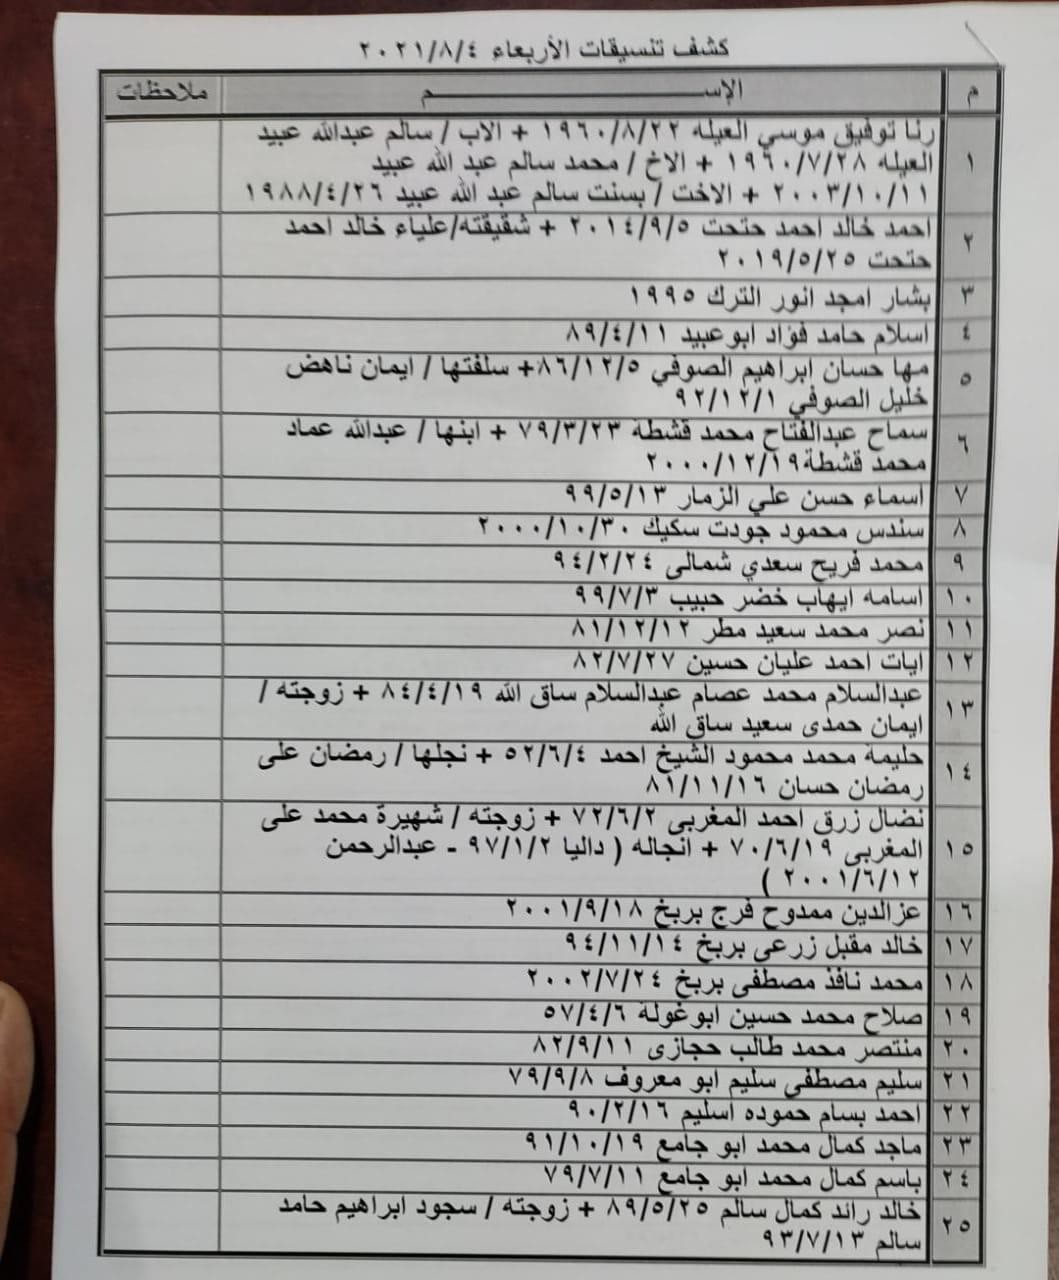 كشف تنسيقات الأربعاء ٢٠٢١/٨/٤
م الإســـــــــــــــــــــــم ملاحظات
١ رنا توفيق موسي العيله ١٩٦٠/٨/٢٢ + الاب / سالم عبدالله عبيد
العيله ١٩٦٠/٧/٢٨ + الاخ / محمد سالم عبد الله عبيد
٢٠٠٣/١٠/١١ + الاخت / بسنت سالم عبد الله عبيد ١٩٨٨/٤/٢٦
٢ احمد خالد احمد حتحت ٢٠١٤/٩/٥ + شقيقته/علياء خالد احمد
حتحت ٢٠١٩/٥/٢٥
٣ بشار امجد انور الترك ١٩٩٥
٤ اسلام حامد فؤاد ابوعبيد ٨٩/٤/١١
٥ مها حسان ابراهيم الصوفي ٨٦/١٢/٥+ سلفتها / ايمان ناهض
خليل الصوفي ٩٢/١٢/١
٦ سماح عبدالفتاح محمد قشطة ٧٩/٣/٢٣ + ابنها / عبدالله عماد
محمد قشطة٢٠٠٠/١٢/١٩
٧ اسماء حسن علي الزمار ٩٩/٥/١٣
٨ سندس محمود جودت سكيك ٢٠٠٠/١٠/٣٠
٩ محمد فريح سعدي شمالى ٩٤/٢/٢٤
١٠ اسامه ايهاب خضر حبيب ٩٩/٧/٣
١١ نصر محمد سعيد مطر ٨١/١٢/١٢
١٢ ايات احمد عليان حسين ٨٢/٧/٢٧
١٣ عبدالسلام محمد عصام عبدالسلام ساق الله ٨٤/٤/١٩ + زوجته /
ايمان حمدى سعيد ساق الله
١٤ حليمة محمد محمود الشيخ احمد ٥٢/٦/٤ + نجلها / رمضان على
رمضان حسان ٨١/١١/١٦
١٥ نضال زرق احمد المغربى ٧٢/٦/٢ + زوجته / شهيرة محمد على
المغربى ٧٠/٦/١٩ + انجاله ( داليا ٩٧/١/٢ - عبدالرحمن
٢٠٠١/٦/١٢ )
١٦ عزالدين ممدوح فرج بربخ ٢٠٠١/٩/١٨
١٧ خالد مقبل زرعى بربخ ٩٤/١١/١٤
١٨ محمد نافذ مصطفى بربخ ٢٠٠٢/٧/٢٤
١٩ صلاح محمد حسين ابوغولة ٥٧/٤/٦
٢٠ منتصر محمد طالب حجازى ٨٢/٩/١١
٢١ سليم مصطفى سليم ابو معروف ٧٩/٩/٨
٢٢ احمد بسام حموده اسليم ٩٠/٢/١٦
٢٣ ماجد كمال محمد ابو جامع ٩١/١٠/١٩
٢٤ باسم كمال محمد ابو جامع ٧٩/٧/١١
٢٥ خالد رائد كمال سالم ٨٩/٥/٢٥ + زوجته / سجود ابراهيم حامد
سالم ٩٣/٧/١٣